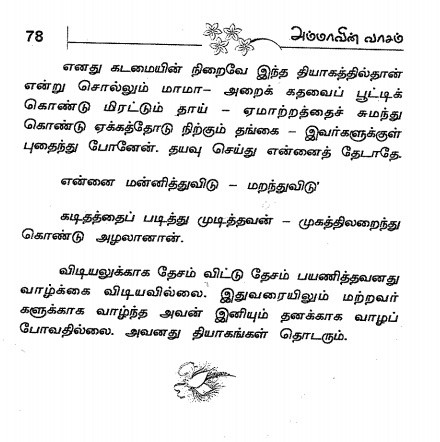 78
அம்மாவின் வாசம்
எனது கடமையின் நிறைவே இந்த தியாகத்தில்தான்
என்று சொல்லும் மாமா– அறைக் கதவைப் பூட்டிக்
கொண்டு மிரட்டும் தாய் – ஏமாற்றத்தைச் சுமந்து
கொண்டு ஏக்கத்தோடு நிற்கும் தங்கை – இவர்களுக்குள்
புதைந்து போனேன். தயவு செய்து என்னைத் தேடாதே.
என்னை மன்னித்துவிடு – மறந்துவிடு'
கடிதத்தைப் படித்து முடித்தவன் – முகத்திலறைந்து
கொண்டு அழலானான்.
விடியலுக்காக தேசம் விட்டு தேசம் பயணித்தவனது
வாழ்க்கை விடியவில்லை. இதுவரையிலும் மற்றவர்
களுக்காக வாழ்ந்த அவன் இனியும் தனக்காக வாழப்
போவதில்லை. அவனது தியாகங்கள் தொடரும்.